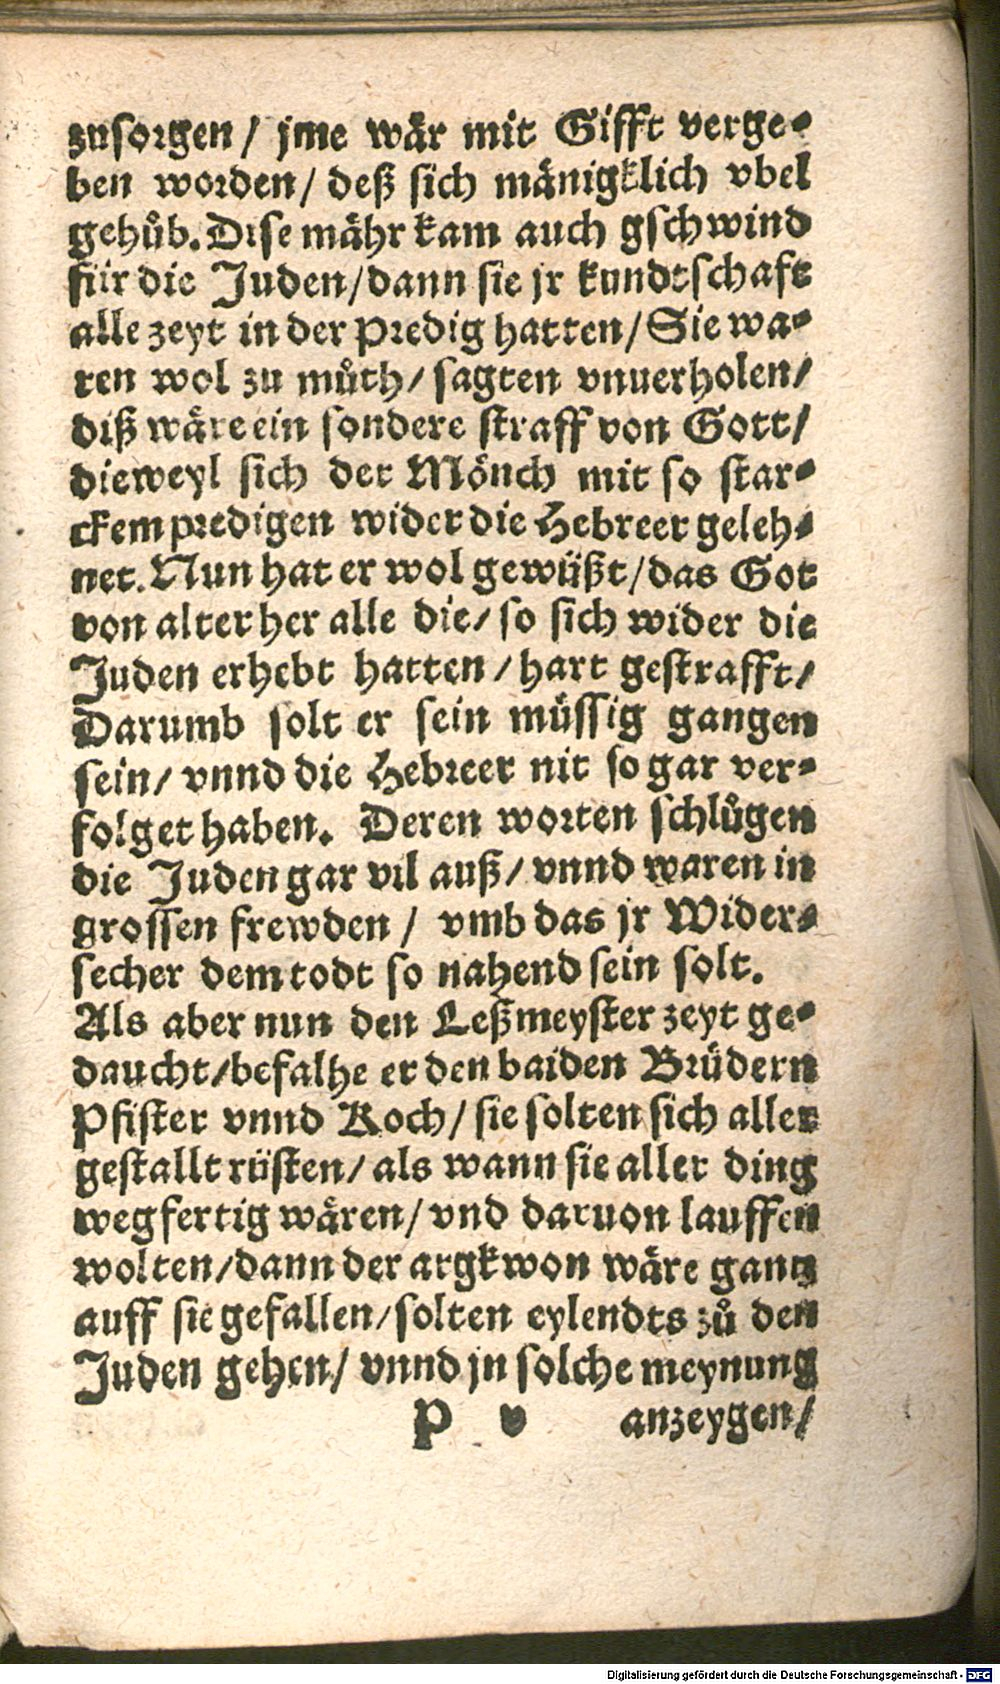 zusorgen / jme wär mit Gifft verge-
ben worden / deß sich mänigklich vbel
gehůb. Dise mähr kam auch gschwind
für die Juden / dann sie jr kundtschaft
alle zeyt in der predig hatten / Sie wa-
ren wol zu můth / sagten vnuerholen /
diß wäre ein sondere straff von Gott /
dieweyl sich der Mönch mit so star-
ckem predigen wider die Hebreer geleh-
net. Nun hat er wol gewüßt / das Got
von alter her alle die / so sich wider die
Juden erhebt hatten / hart gestrafft /
Darumb solt er sein müssig gangen
sein / vnnd die Hebreer nit so gar ver-
folget haben. Deren worten schlůgen
die Juden gar vil auß / vnnd waren in
grossen frewden / vmb das jr Wider-
secher dem todt so nahend sein solt.
Als aber nun den Leßmeyster zeyt ge-
daucht / befalhe er den baiden Brüdern
Pfister vnnd Koch / sie solten sich aller
gestallt rüsten / als wann sie aller ding
wegfertig wären / vnd daruon lauffen
wolten / dann der argkwon wäre gantz
auff sie gefallen / solten eylendts zů den
Juden gehen / vnnd jn solche meynung
P v anzeygen /
Digitalisierung gefördert durch die Deutsche Forschungsgemeinschaft - DFG